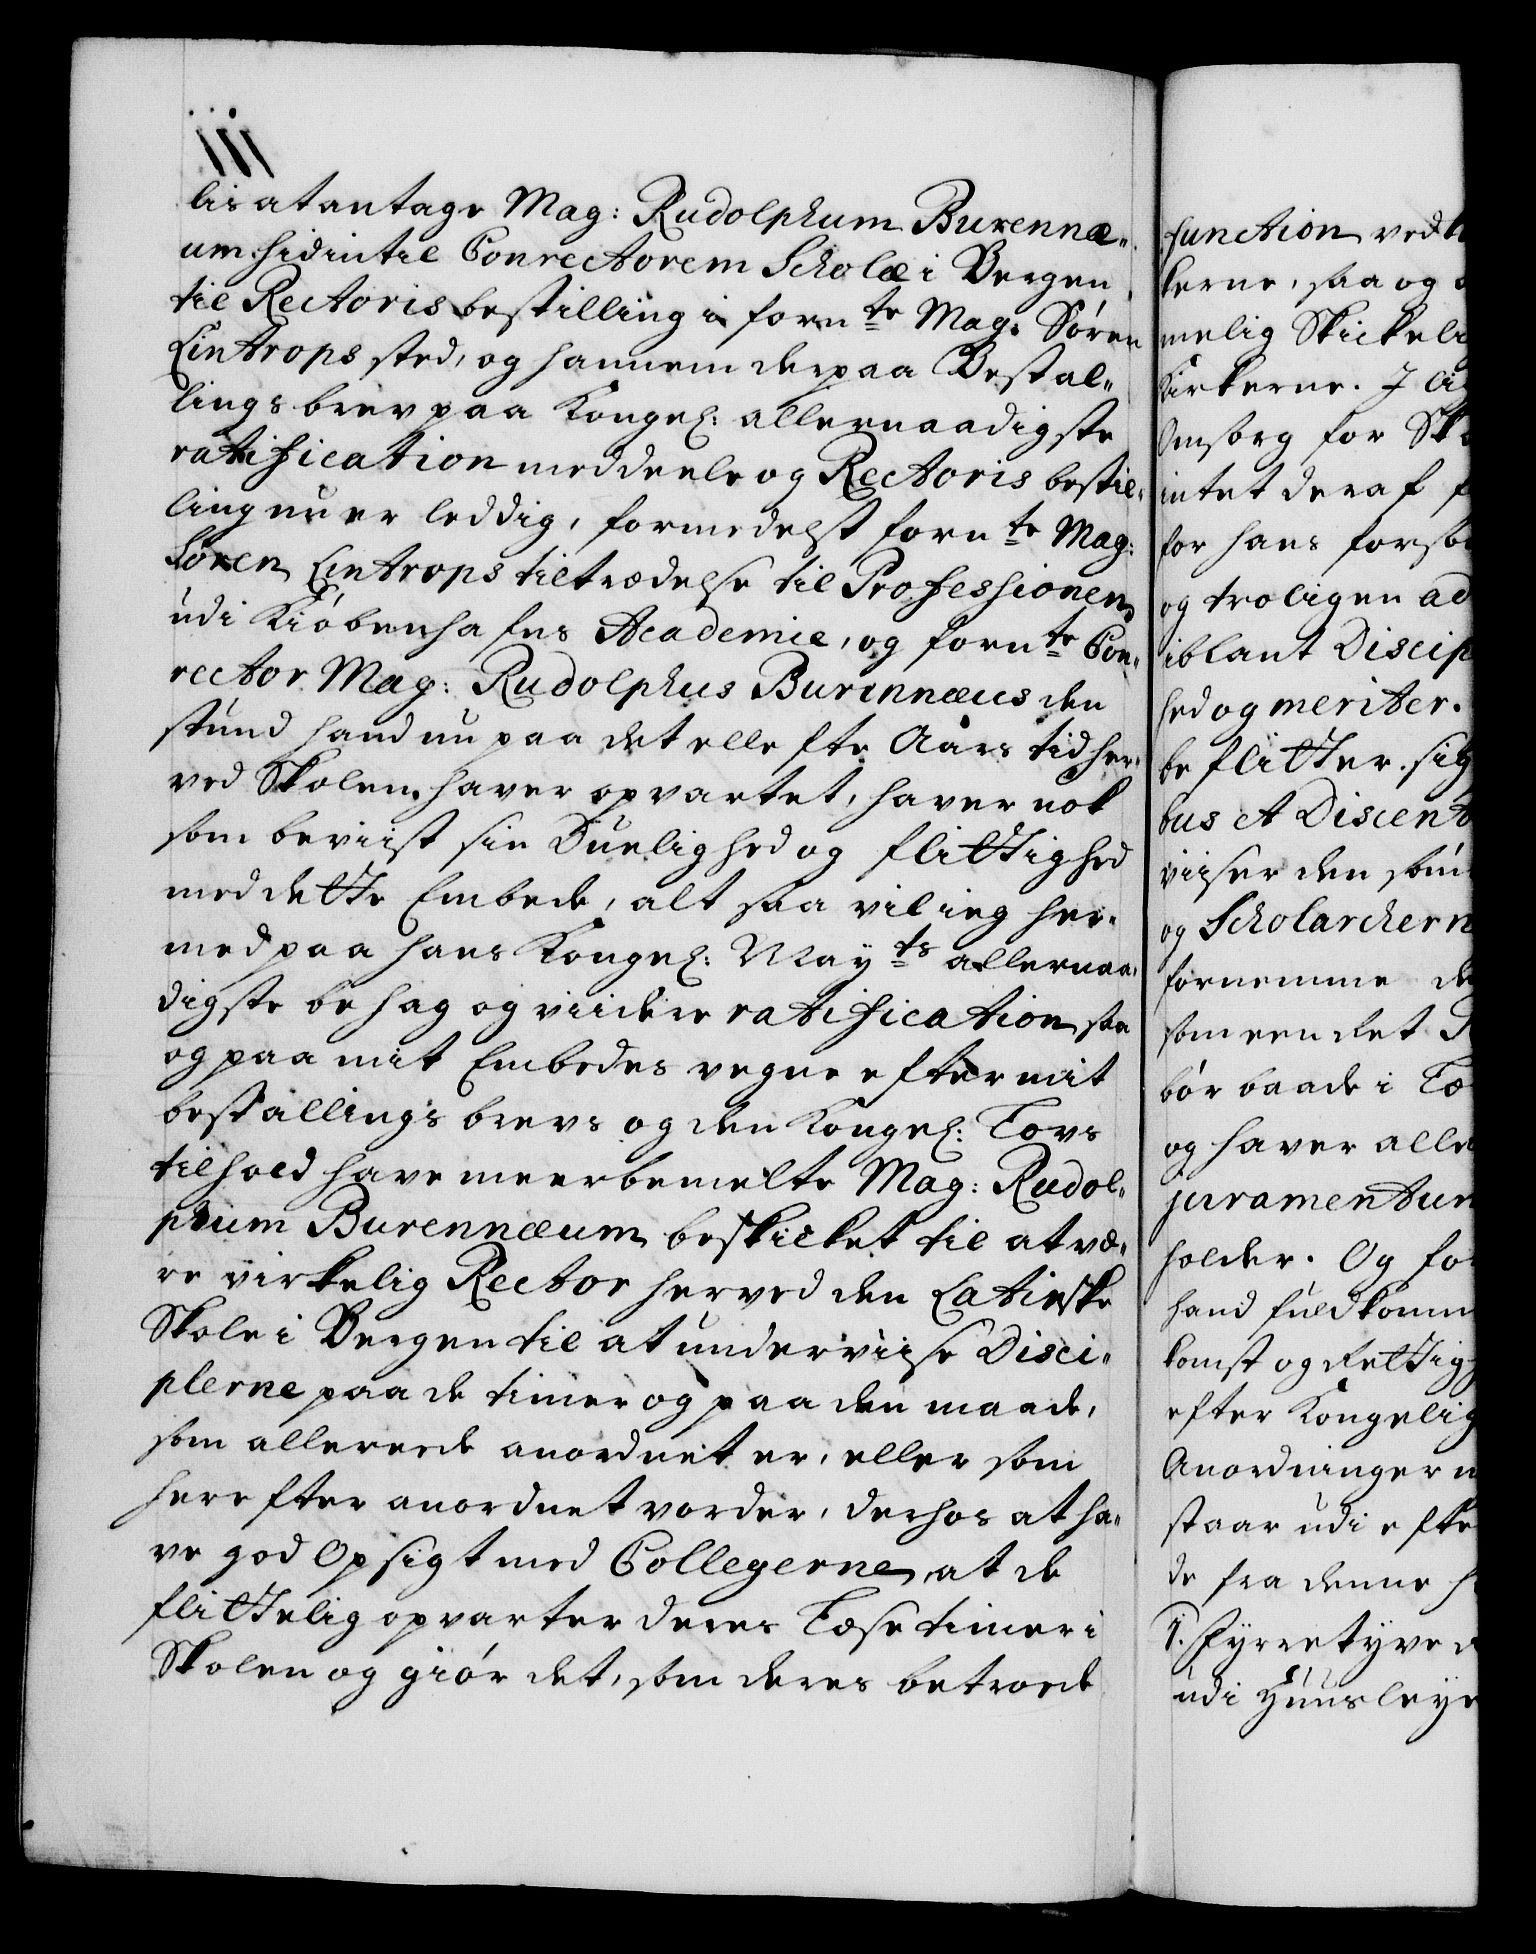 iiij
lis at antage Mag: Rudolphum Burennæ„
um hidintil Conrectorem Scholæ i Bergen
til Rectoris bestilling i fornte Mag: Sören
Lintrops sted, og hannem derpaa Bestal„
lings brev paa Kongel: allernaadigste
ratification meddeele og Rectoris bestil„
ling nu er leddig, formedelst fornte Mag:
Sören Lintrops tiltrædelse til Professionen
udi Kiöbenhafns Academie, og fornte Con„
rector Mag: Rudolphus Burennæus den
stund hand nu paa det ellefte Aars tid her„
ved Skolen haver opvartet, haver nok
som beviist sin Duelighed og flittighed
med dette Embede, alt saa vil ieg her„
med paa hans Kongel: Mayts allernaa„
digste behag og viidere ratification saa
og paa mit Embedes vegne efter mit
bestallings brevs og den Kongel: Lovs
tilhold have meerbemelte Mag: Rudol„
phum Burennæum beskicket til at væ„
re virkelig Rector herved den Latinske
Skole i Bergen til at underviise Disci„
plerne paa de timer og paa den maade,
som allerede anordnet er, eller som
herefter anordnet vorder, derhos at ha„
ve god Opsigt med Collegerne, at de
flittelig opvarter deres Læse timer i
Skolen og giör det, som deres betroede
function ved
kerne, saa og
melig Skickeli
Kirkerne. I li
Omsorg for Sk
intet deraf f
for hans forsö
og troligen ad
iblant Discip
hed og meriter.
beflitter sig
bus et Discent
viiser den
og Scholarchern
fornemme de
som een ret R
bör baade i Læ
og haver alle
juramentum
holder. Og fo
hand fuldkomm
komst og Rettig
efter Kongelig
Anordninger
staar udi efte
de fra denne
1. Fyrretyve
udi Huusleye